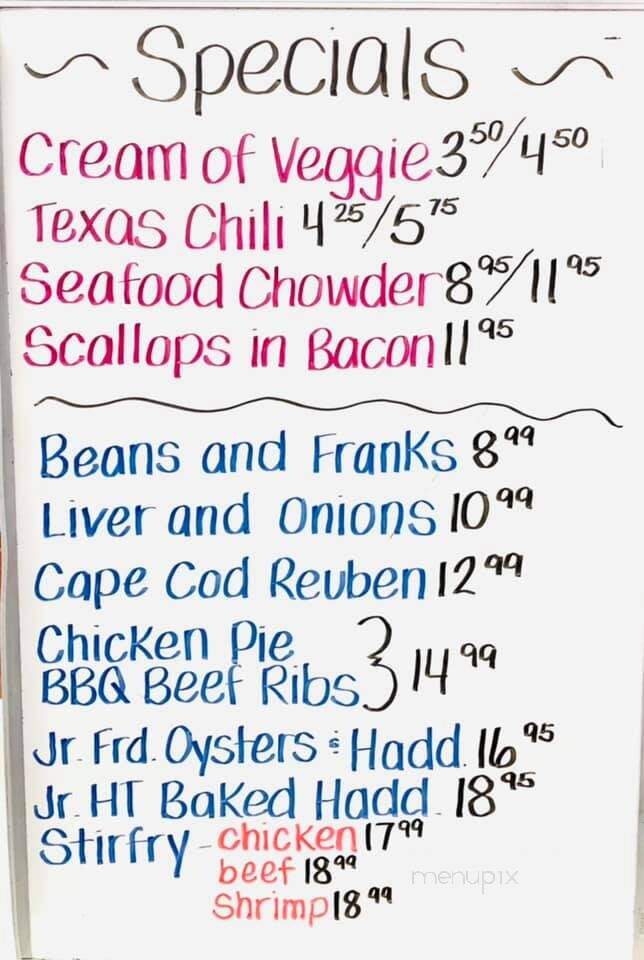 ~ Specials ~
Cream of Veggie 3 50/4 50
Texas Chili 4 25/5 75
Seafood Chowder 8 95/11 95
Scallops in Bacon 11 95
Beans and Franks 8 99
Liver and Onions 10 99
Cape Cod Reuben 12 99
Chicken Pie
BBQ Beef Ribs } 14 99
Jr. Frd. Oysters & Hadd. 16 95
Jr. HT Baked Hadd. 18 95
Stirfry - chicken 17 99
beef 18 99
Shrimp 18 99
menupix